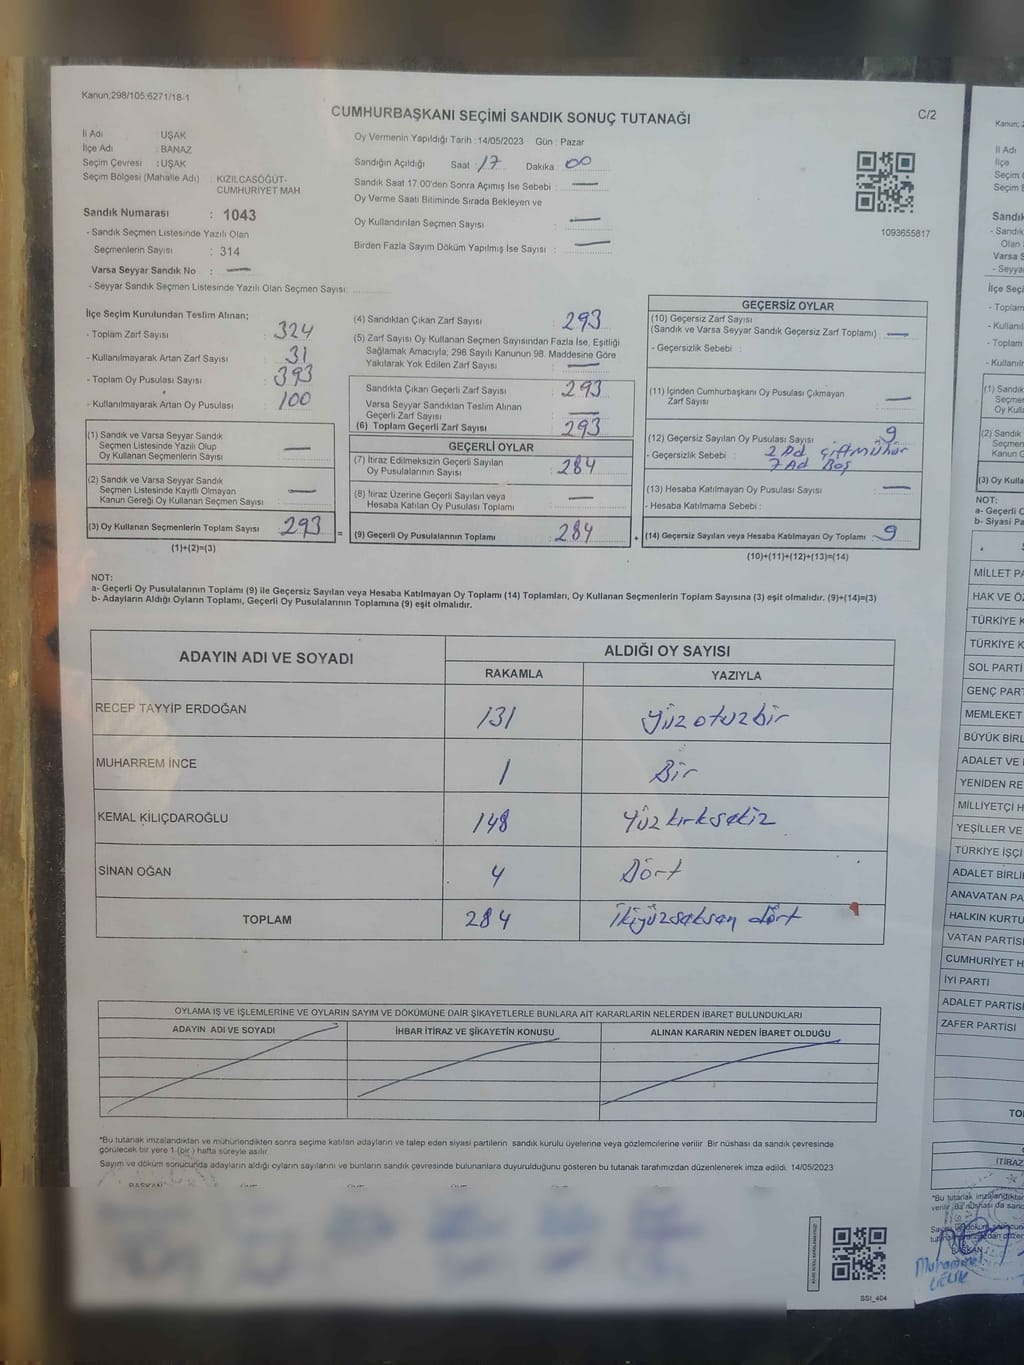 Kanun;298/105,6271/18-1
C/2
CUMHURBAŞKANI SEÇİMİ SANDIK SONUÇ TUTANAĞI
İl Adı : UŞAK
İlçe Adı : BANAZ
Seçim Çevresi : UŞAK
Seçim Bölgesi (Mahalle Adı) : KIZILCASÖĞÜT-
CUMHURİYET MAH.
Sandık Numarası : 1043
- Sandık Seçmen Listesinde Yazılı Olan
Seçmenlerin Sayısı : 314
Varsa Seyyar Sandık No : —
- Seyyar Sandık Seçmen Listesinde Yazılı Olan Seçmen Sayısı:
Oy Vermenin Yapıldığı Tarih : 14/05/2023 Gün : Pazar
Sandığın Açıldığı Saat : 17 Dakika : 00
Sandık Saat 17:00'den Sonra Açımış İse Sebebi : —
Oy Verme Saati Bitiminde Sırada Bekleyen ve
Oy Kullandırılan Seçmen Sayısı : —
Birden Fazla Sayım Döküm Yapılmış İse Sayısı : —
1093655817
İlçe Seçim Kurulundan Teslim Alınan;
- Toplam Zarf Sayısı : 324
- Kullanılmayarak Artan Zarf Sayısı : 31
- Toplam Oy Pusulası Sayısı : 393
- Kullanılmayarak Artan Oy Pusulası : 100
(1) Sandık ve Varsa Seyyar Sandık
Seçmen Listesinde Yazılı Olup
Oy Kullanan Seçmenlerin Sayısı : —
(2) Sandık ve Varsa Seyyar Sandık
Seçmen Listesinde Kayıtlı Olmayan
Kanun Gereği Oy Kullanan Seçmen Sayısı : —
(3) Oy Kullanan Seçmenlerin Toplam Sayısı : 293 =
(1)+(2)=(3)
(4) Sandıktan Çıkan Zarf Sayısı : 293
(5) Zarf Sayısı Oy Kullanan Seçmen Sayısından Fazla İse, Eşitliği
Sağlamak Amacıyla; 298 Sayılı Kanunun 98. Maddesine Göre
Yakılarak Yok Edilen Zarf Sayısı : —
Sandıkta Çıkan Geçerli Zarf Sayısı : 293
Varsa Seyyar Sandıktan Teslim Alınan
Geçerli Zarf Sayısı : —
(6) Toplam Geçerli Zarf Sayısı : 293
GEÇERLİ OYLAR
(7) İtiraz Edilmeksizin Geçerli Sayılan
Oy Pusulalarının Sayısı : 284
(8) İtiraz Üzerine Geçerli Sayılan veya
Hesaba Katılan Oy Pusulaları Toplamı : —
(9) Geçerli Oy Pusulalarının Toplamı : 284 +
GEÇERSİZ OYLAR
(10) Geçersiz Zarf Sayısı
(Sandık ve Varsa Seyyar Sandık Geçersiz Zarf Toplamı) : —
- Geçersizlik Sebebi :
(11) İçinden Cumhurbaşkanı Oy Pusulası Çıkmayan
Zarf Sayısı : —
(12) Geçersiz Sayılan Oy Pusulası Sayısı : 9
- Geçersizlik Sebebi : 2 Ad çift mühür
7 Ad Boş
(13) Hesaba Katılmayan Oy Pusulası Sayısı : —
- Hesaba Katılmama Sebebi :
(14) Geçersiz Sayılan veya Hesaba Katılmayan Oy Toplamı : 9
(10)+(11)+(12)+(13)=(14)
NOT:
a- Geçerli Oy Pusulalarının Toplamı (9) ile Geçersiz Sayılan veya Hesaba Katılmayan Oy Toplamı (14) Toplamları, Oy Kullanan Seçmenlerin Toplam Sayısına (3) eşit olmalıdır. (9)+(14)=(3)
b- Adayların Aldığı Oyların Toplamı, Geçerli Oy Pusulalarının Toplamına (9) eşit olmalıdır.
ADAYIN ADI VE SOYADI ALDIĞI OY SAYISI
RAKAMLA YAZIYLA
RECEP TAYYİP ERDOĞAN 131 Yüzotuzbir
MUHARREM İNCE 1 Bir
KEMAL KILIÇDAROĞLU 148 Yüzkırksekiz
SİNAN OĞAN 4 Dört
TOPLAM 284 İkiyüzseksen dört
OYLAMA İŞ VE İŞLEMLERİNE VE OYLARIN SAYIM VE DÖKÜMÜNE DAİR ŞİKAYETLERLE BUNLARA AİT KARARLARIN NELERDEN İBARET BULUNDUKLARI
ADAYIN ADI VE SOYADI İHBAR İTİRAZ VE ŞİKAYETİN KONUSU ALINAN KARARIN NEDEN İBARET OLDUĞU
*Bu tutanak imzalandıktan ve mühürlendikten sonra seçime katılan adayların ve talep eden siyasi partilerin sandık kurulu üyelerine veya gözlemcilerine verilir. Bir nüshası da sandık çevresinde
görülecek bir yere 1 (bir) hafta süreyle asılır.
Sayım ve döküm sonucunda adayların aldığı oyların sayılarını ve bunların sandık çevresinde bulunanlara duyurulduğunu gösteren bu tutanak tarafımızdan düzenlenerek imza edildi. 14/05/2023
BAŞKAN
SSI_404
Kanun;
İl Adı
İlçe
Seçim
Sandık
- Sandık
Olan
Varsa S
- Seyya
İlçe Seçi
- Toplam
- Kullanıl
- Toplam
- Kullanılr
(1) Sandık
Seçmen
Oy Kulla
(2) Sandık
Seçmen
Kanun G
(3) Oy Kulla
NOT:
a- Geçerli O
b- Siyasi Pa
MİLLET PA
HAK VE ÖZ
TÜRKİYE K
TÜRKİYE K
SOL PARTİ
GENÇ PART
MEMLEKET
BÜYÜK BİRL
ADALET VE
YENİDEN RE
MİLLİYETÇİ H
YEŞİLLER VE
TÜRKİYE İŞÇİ
ADALET BİRLİ
ANAVATAN PA
HALKIN KURTU
VATAN PARTİSİ
CUMHURİYET H
İYİ PARTİ
ADALET PARTİSİ
ZAFER PARTİSİ
TO
İTİRAZ
*Bu tutanak imzalandıktan
BAŞKAN
Muhammet
ÇELİK